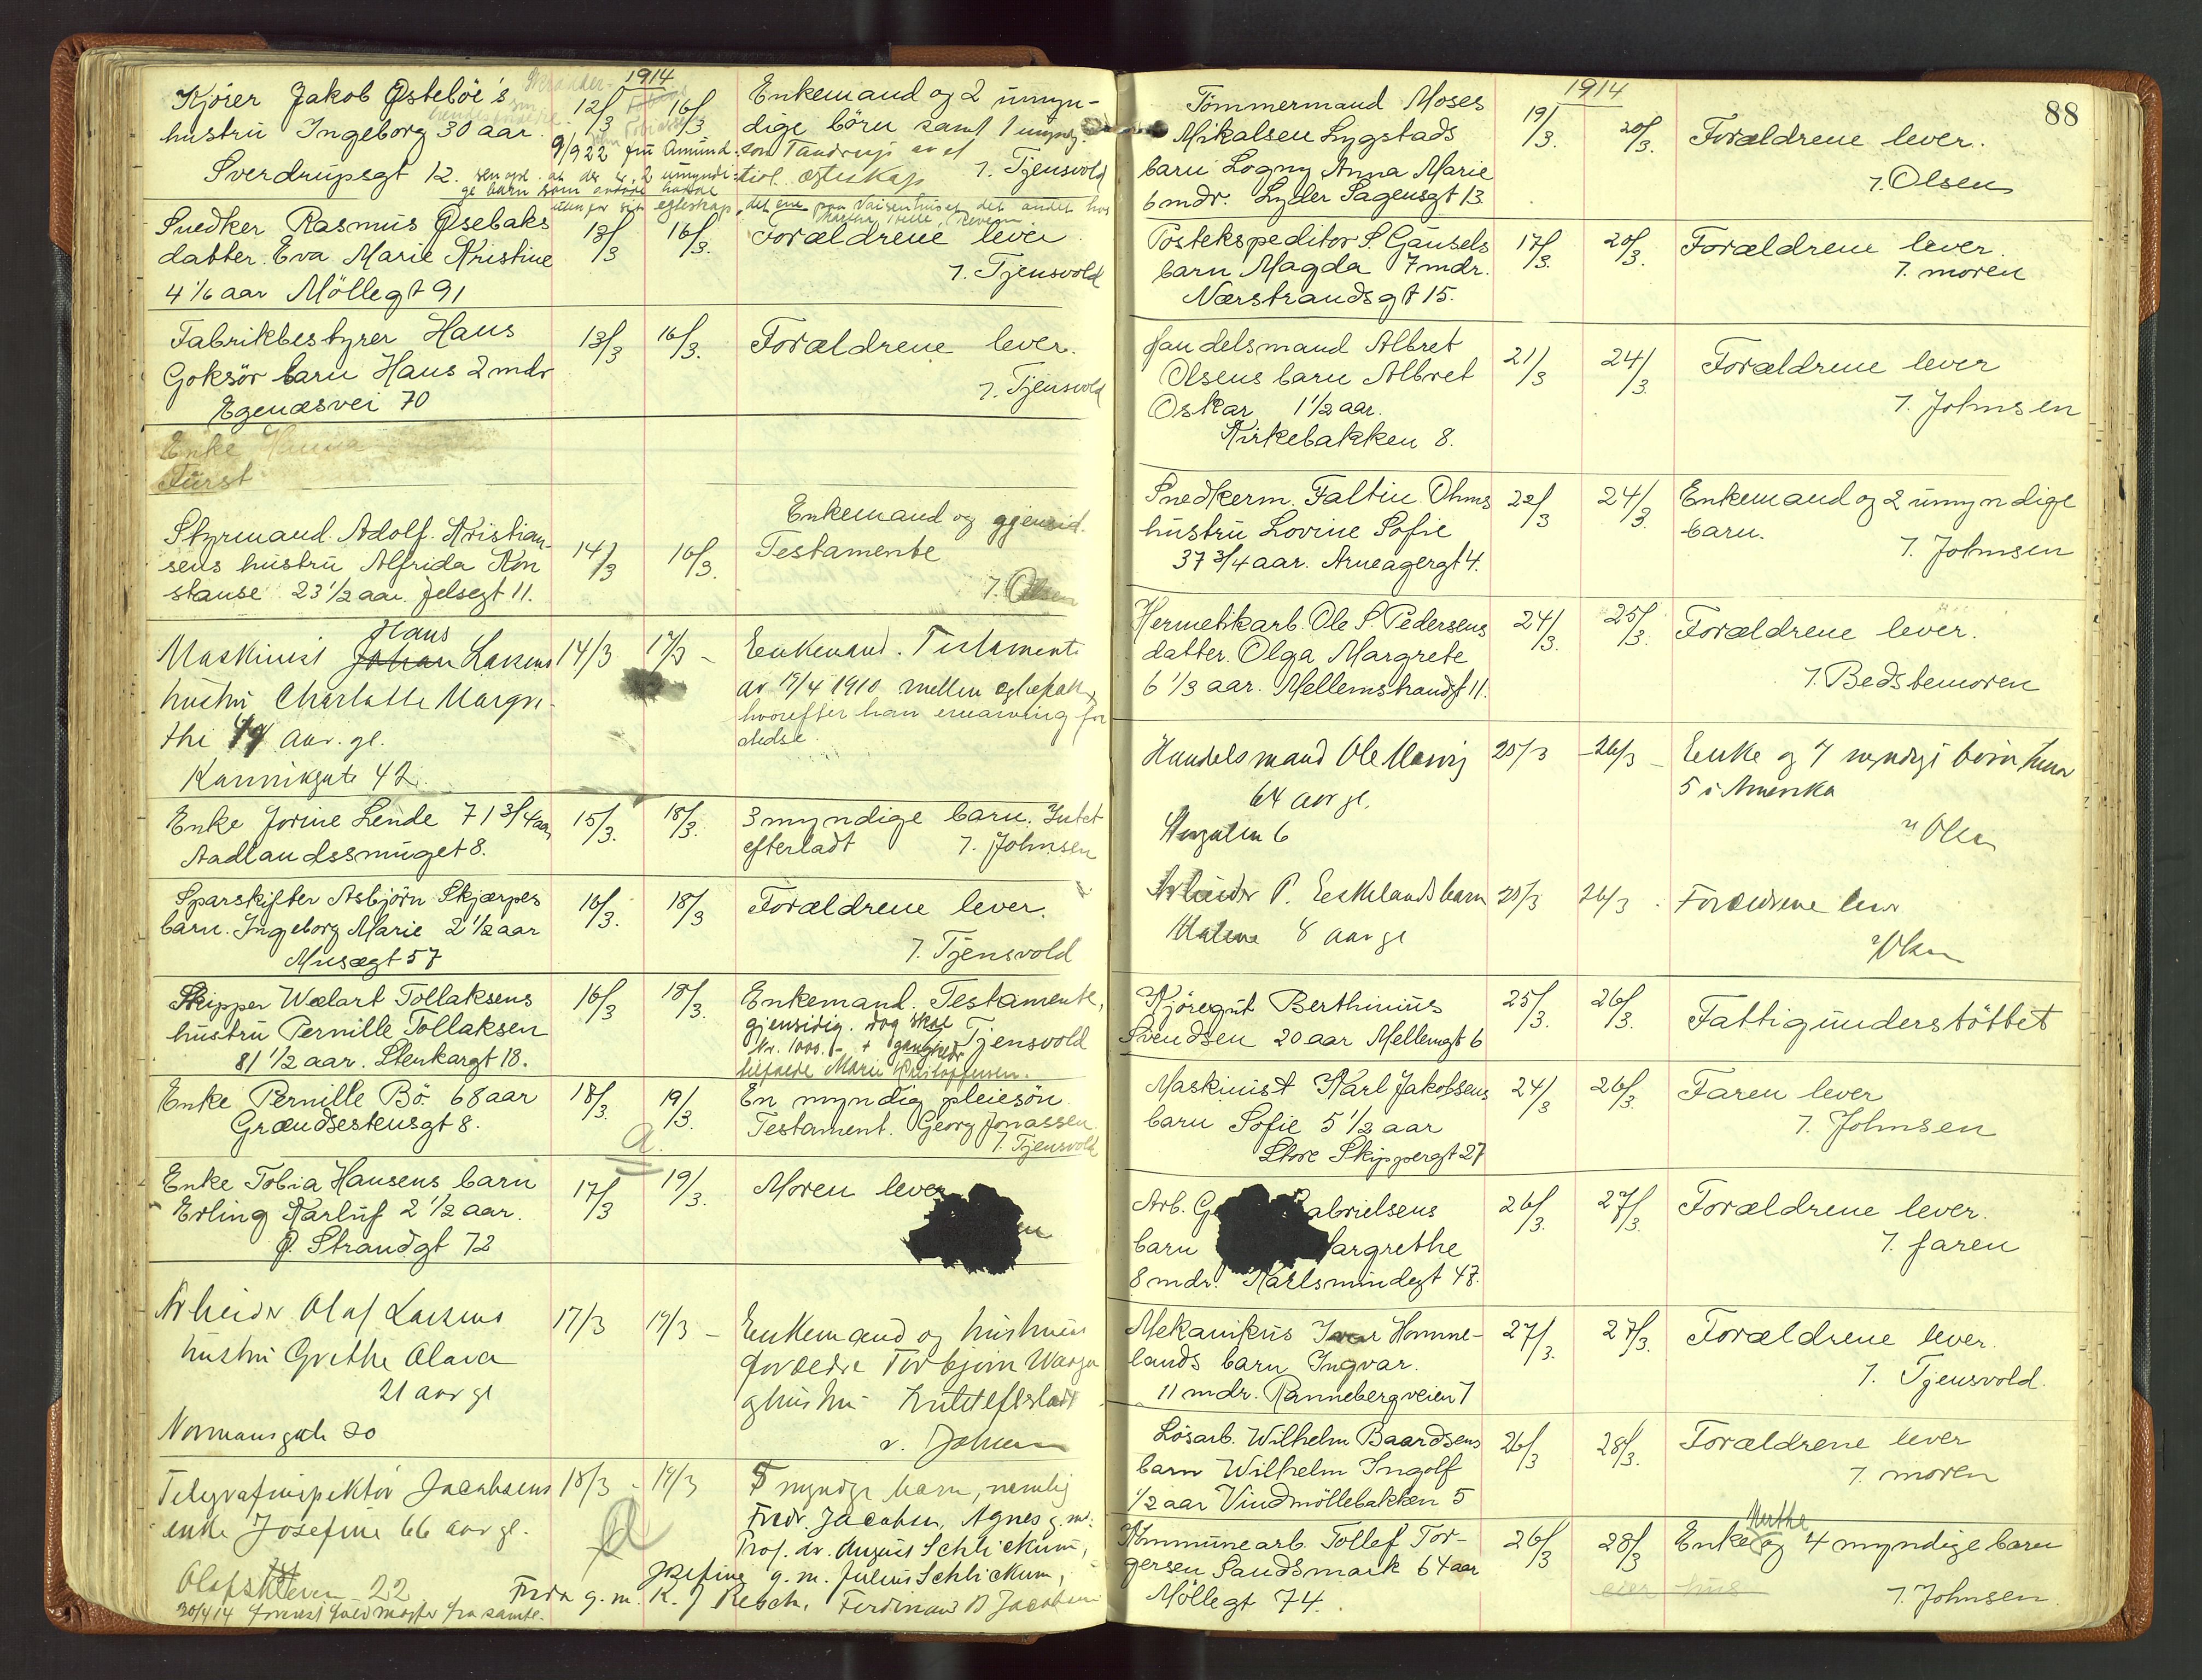 1914
Kjörer Jakob Østeböe's 12/3 16/3 Enkemand og 2 umyn-
hustru Ingeborg 30 aar. dige börn samt 1 myndg.
9/9 22 fru Amundsen Tandrup
Sverdrupsgt 12. 7. Tjensvold
Snedker Rasmus Øsebaks 13/3 16/3. Forældrene lever
datter. Eva Marie Kristine 7. Tjensvold
4 1/6 aar Möllegt 91
Fabrikbestyrer Hans 13/3 16/3. Forældrene lever.
Goksör barn Hans 2 mdr 7. Tjensvold
Egenæsvei 70
Enke
Fürst
Enkemand og gjensid.
Styrmand Adolf Kristian- 14/3 16/3. Testamente
sens hustru Alfrida Kon
stanse 23 1/2 aar. Jelsegt 11. 7. Olsen
Hans
Maskinist Johan Larsens 14/3 17/3 - Enkemand. Testamente
hustru Charlotte Margre- av 19/4 1910 mellem egtefolk,
the aar. gl. hvorefter han er
Kannikgate 42.
Enke Jorine Lende 71 3/4 aar 15/3. 18/3. 3 myndige barn. Intet
Aadlandssmuget 8. efterladt 7. Johnsen
Sparskifter Asbjörn Skjærpes 16/3. 18/3 Forældrene lever.
barn. Ingeborg Marie 2 1/2 aar 7. Tjensvold
Musægt 57
Skipper Wælart Tollaksens 16/3 18/3. Enkemand. Testamente,
hustru Pernille Tollaksen gjensidig. dog skal Tjensvold
81 1/2 aar. Stenkargt 18. Kr. 1000.- + gangklædr
tilfalde Marie Kristoffersen.
Enke Pernille Bö. 68 aar 18/3. 19/3. En myndig pleiesön.
Grændsestensgt 8. Testament. Georg Jonassen.
a. 7. Tjensvold
Enke Tobia Hansens barn 17/3 19/3. Moren lever
Erling Karluf 2 1/2 aar.
Ø. Strandgt 72
Arbeider Olaf Larsens 17/3 19/3 - Enkemand og hustrues
hustru Grethe Olava forældre Torbjörn
21 aar gl Intet efterladt
Normansgate 20 v. Johnsen
Telegrafinspektör Jacobsens 18/3 - 19/3 5 myndge barn, nemlig
enke Josefine 66 aar gl. Fredr. Jacobsen, Agnes g. m.
a Prof. dr. August Schlickum,
Josefine g. m. Julius Schlickum,
Olafskleven 22 Frida g. m. K. J Resch, Ferdinand B Jacobsen
30/4 14
88
1914
Tömmermand Moses 19/3. 20/3. Forældrene lever.
Mikalsen Lygstads
barn Logny Anna Marie 7. Olsen
6 mdr. Lyder Sagensgt 13.
Postekspeditor S. Gausels 17/3. 20/3. Forældrene lever.
barn Magda 7 mdr. 7. moren
Nærstrandsgt 15.
Handelsmand Albret 21/3 24/3. Forældrene lever
Olsens barn Albret
Oskar 1 1/2 aar. 7. Johnsen
Kirkebakken 8.
Snedkerm. Faltin Ohms 22/3 24/3. Enkemand og 2 umyndige
hustru Lovine Sofie barn.
37 3/4 aar. Arneagergt 4. 7. Johnsen
Hermetikarb. Ole S. Pedersens 24/3. 25/3. Forældrene lever.
datter. Olga Margrete
6 1/3 aar. Mellemstraudgt 11. 7. Bedstemoren
Handelsmand Ole 25/3 - 26/3 - Enke og 7 myndige börn,
64 aar gl. 5 i Amerika
6 Olsen
Arbeider P. Eeskelands barn 25/3 26/3 - Forældrene lever
Malene 8 aar gl Olsen
Kjöregut Berthinius 25/3. 26/3. Fattigunderstöttet
Svendsen 20 aar Mellemgt 6
Maskinist Karl Jakobsens 24/3 26/3. Faren lever
barn Sofie 5 1/2 aar 7. Johnsen
Store Skippergt 27
Arb. G abrielsens 26/3. 27/3. Forældrene lever.
barn argrethe 7. faren
8 mdr. Karlsmindegt 48.
Mekanikus Ivar Homme- 27/3. 27/3. Forældrene lever.
lands barn Ingvar. 7. Tjensvold.
11 mdr. Rannebergveien 7
Lösarb. Wilhelm Baardsens 26/3 28/3. Forældrene lever
barn Wilhelm Ingolf 7. moren
1/2 aar Vindmöllebakken 5
Kommunearb. Tollef Tor- 26/3 28/3. Enke og 4 myndige barn
gersen Sandsmark 64 aar eier hus
Möllegt 74. 7. Johnsen.